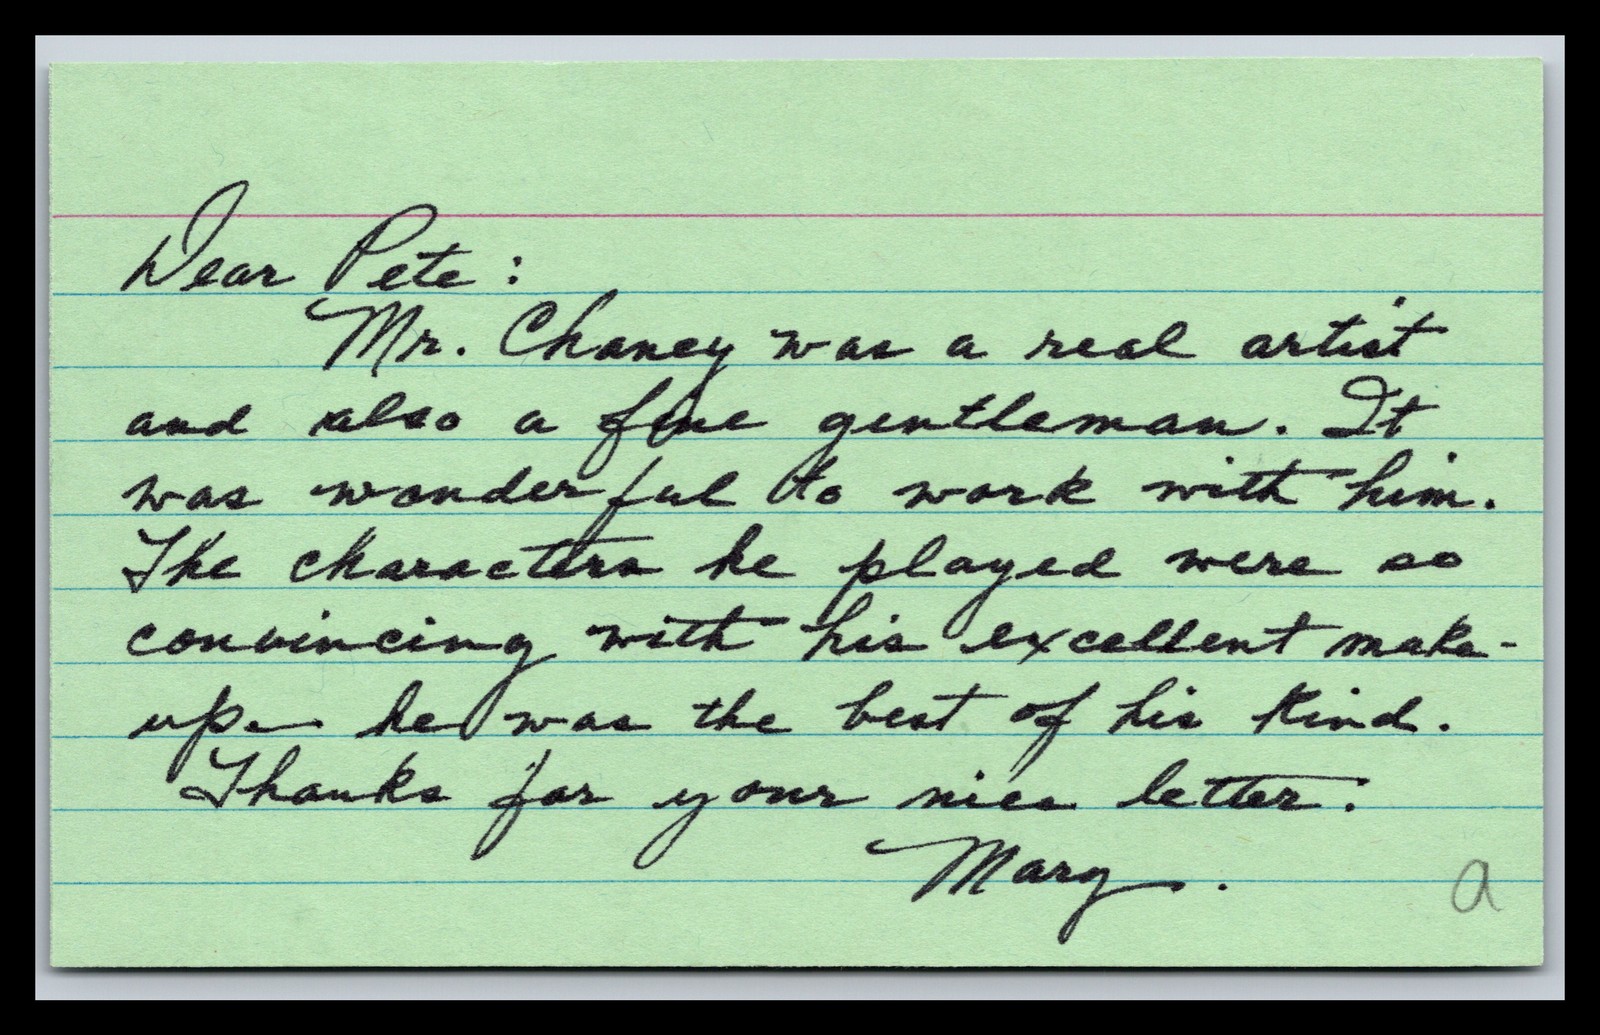 Dear Pete:
Mr. Chaney was a real artist
and also a fine gentleman. It
was wonderful to work with him.
The characters he played were so
convincing with his excellent make-
up he was the best of his kind.
Thanks for your nice letter.
Mary.
a